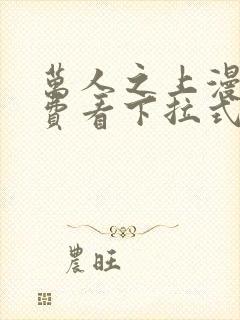 萬人之上漫
費看下拉式
農旺